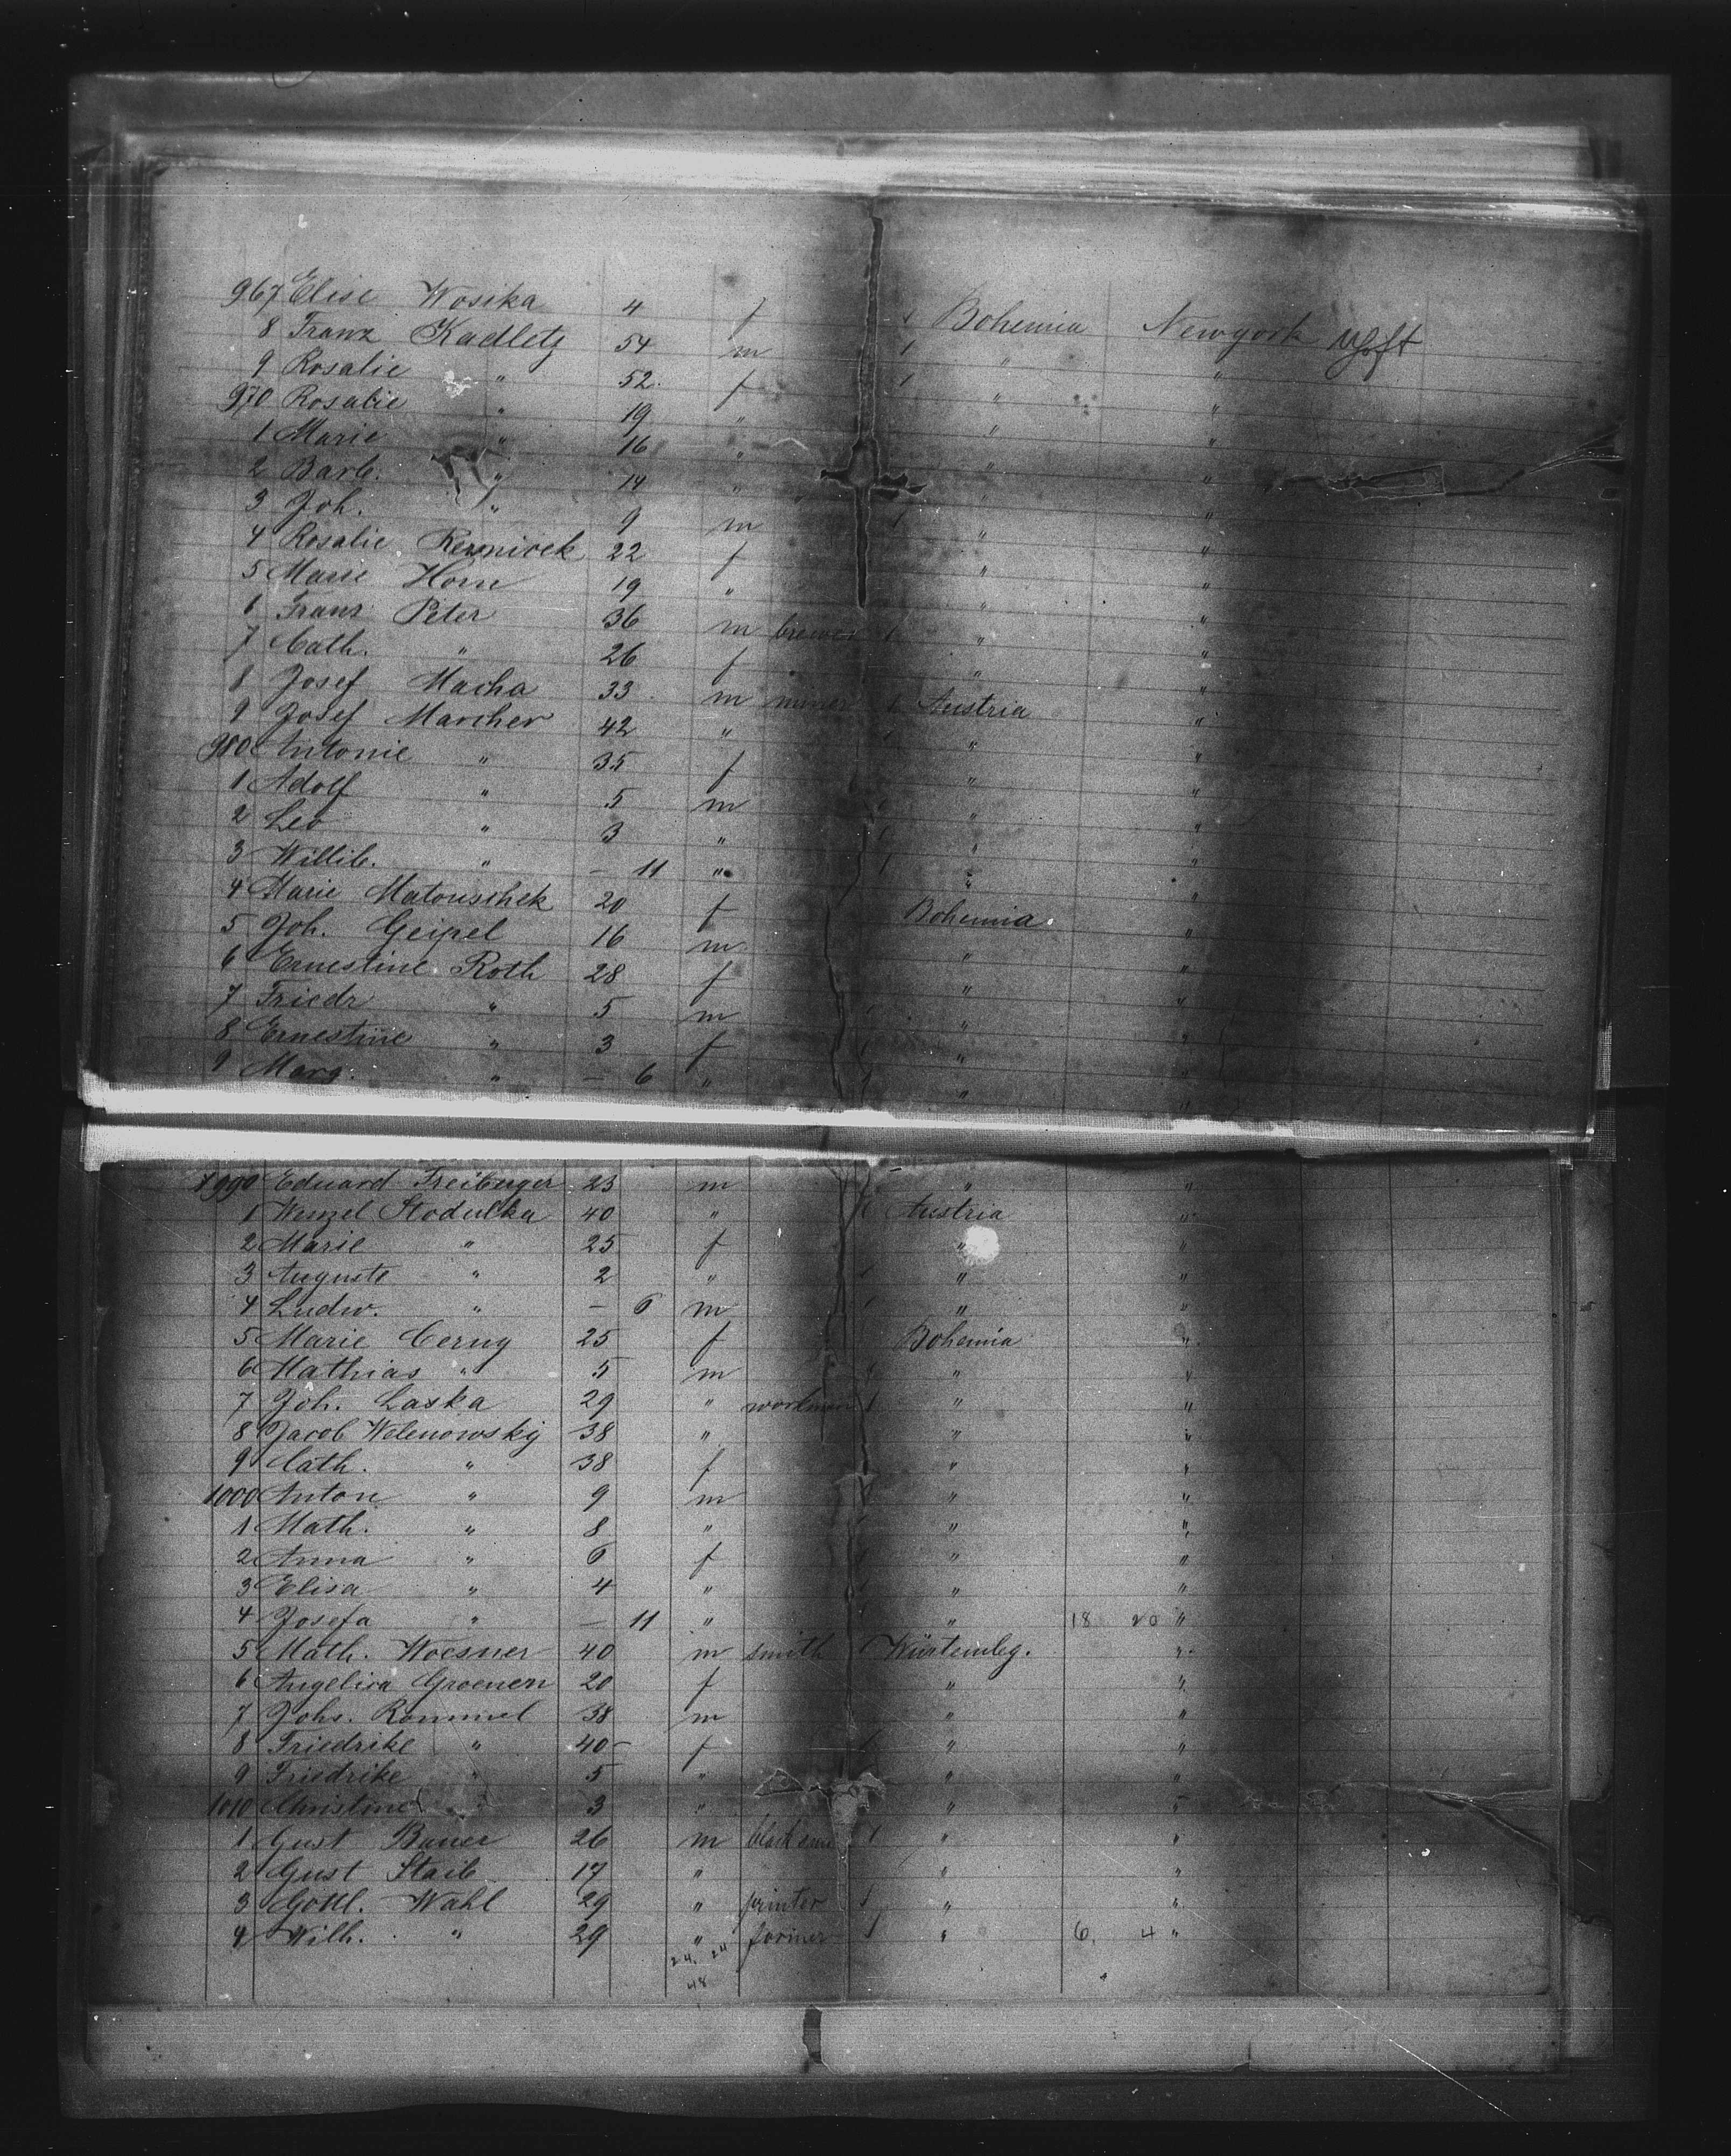 967 Elise Wosika 4 f 1 Bohemia Newyork
8 Franz Kadletz 54 m 1 " "
9 Rosalie " 52 f 1 " "
970 Rosalie " 19 " " "
1 Marie " 16 " " "
2 Barb. " 14 " " "
3 Joh. " 9 m 1 " "
4 Rosalie 22 f " "
5 Marie Horn 19 " " "
6 Franz Peter 36 m brewer 1 " "
7 Cath. " 26 f " "
8 Josef Macha 33 m miner 1 Austria "
9 Josef Marcher 42 " " "
980 Antonie " 35 f " "
1 Adolf " 5 m " "
2 Leo " 3 " " "
3 Willib. " – 11 " 1 " "
4 Marie Matouschek 20 f Bohemia "
5 Joh. Geipel 16 m " "
6 Ernestine Roth 28 f " "
7 Friedr " 5 m " "
8 Ernestine " 3 f " "
9 Marg. " – 6 " " "
990 Eduard Freiberger 23 m " "
1 Wenzel Stodulka 40 " Austria "
2 Marie " 25 f " "
3 Auguste " 2 " " "
4 Ludw. " – 6 m " "
5 Marie Cerny 25 f Bohemia "
6 Mathias " 5 m " "
7 Joh. Laska 29 " workman 1 " "
8 Jacob Welenowsky 38 " " "
9 Cath. " 38 f " "
1000 Anton " 9 m " "
1 Math. " 8 " " "
2 Anna " 6 f " "
3 Elisa " 4 " " "
4 Josefa " – 11 " " 18 20 "
5 Math. Woesner 40 m smith Würtembg. "
6 Angelica Groenern 20 f " "
7 Johs. Rommel 38 m " "
8 Friedrike " 40 f " "
9 Friedrike " 5 " " "
1010 Christine " 3 " " "
1 Gust Bauer 26 m 1 " "
2 Gust Staib 17 " " "
3 Gottl. Wahl 29 " printer 1 " "
4 Wilh. " 29 " farmer 1 " 6. 4 "
24. 24
48